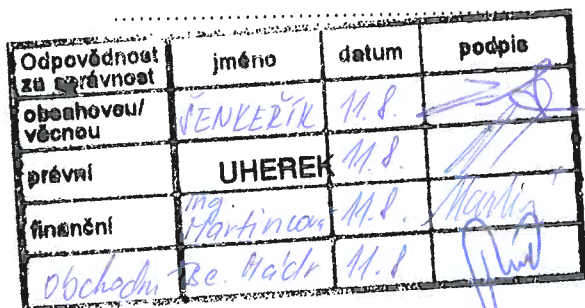 Odpovědnost za správnost jméno datum podpis
obsahovou/věcnou ŠENKEŘÍK 11.8.
právní UHEREK 11.8.
finanční Ing. Martincová 11.8.
Obchodní Bc. 11.8